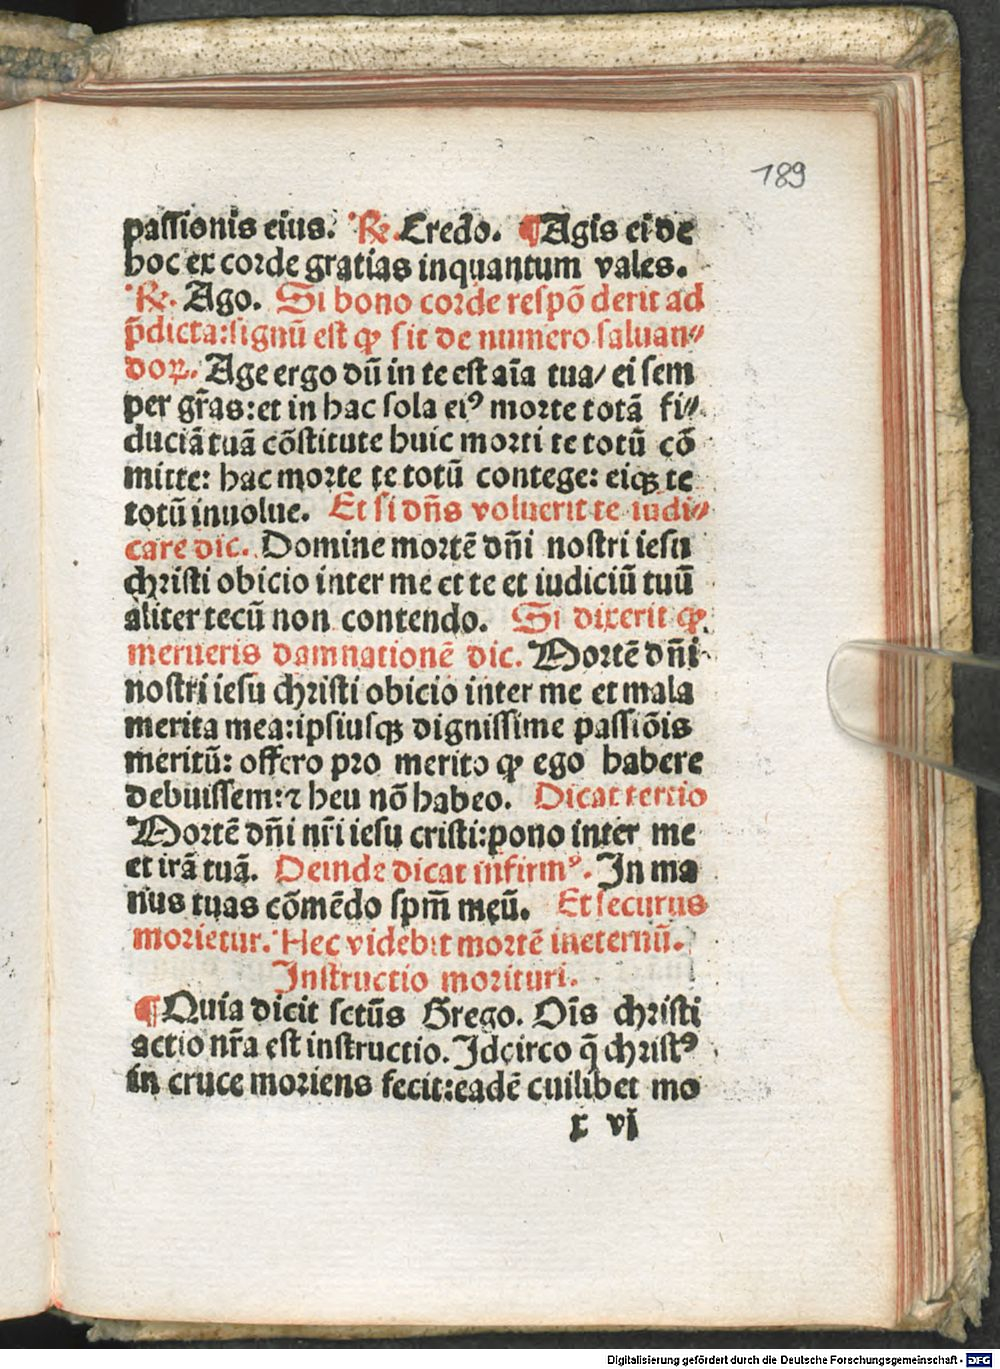 189
passionis eius. ℟. Credo. ¶Agis ei de
hoc ex corde gratias inquantum vales.
℟. Ago. Si bono corde respō derit ad
p̄dicta:signū est ꝙ sit de numero saluan⸗
doꝝ. Age ergo dū in te est aīa tua/ ei sem
per gr̄as:et in hac sola eiꝰ morte totā fi⸗
duciā tuā cōstitute huic morti te totū cō
mitte: hac morte te totū contege: eiqꝫ te
totū inuolue. Et si dn̄s voluerit te iudi⸗
care dic. Domine mortē dn̄i nostri iesu
christi obicio inter me et te et iudiciū tuū
aliter tecū non contendo. Si dixerit ꝙ
merueris damnationē dic. Mortē dn̄i
nostri iesu christi obicio inter me et mala
merita mea:ipsiusqꝫ dignissime passiōis
meritū: offero pro merito ꝙ ego habere
debuissem:⁊ heu nō habeo. Dicat tercio
Mortē dn̄i nr̄i iesu cristi:pono inter me
et irā tuā. Deinde dicat infirmꝰ. In ma
nus tuas cōmēdo spm̄ meū. Et securus
morietur. Nec videbit mortē ineternū.
Instructio morituri.
¶Quia dicit sctūs Grego. Oīs christi
actio nr̄a est instructio. Idcirco q̄ christꝰ
in cruce moriens fecit:eadē cuilibet mo
x vi
Digitalisierung gefördert durch die Deutsche Forschungsgemeinschaft - DFG